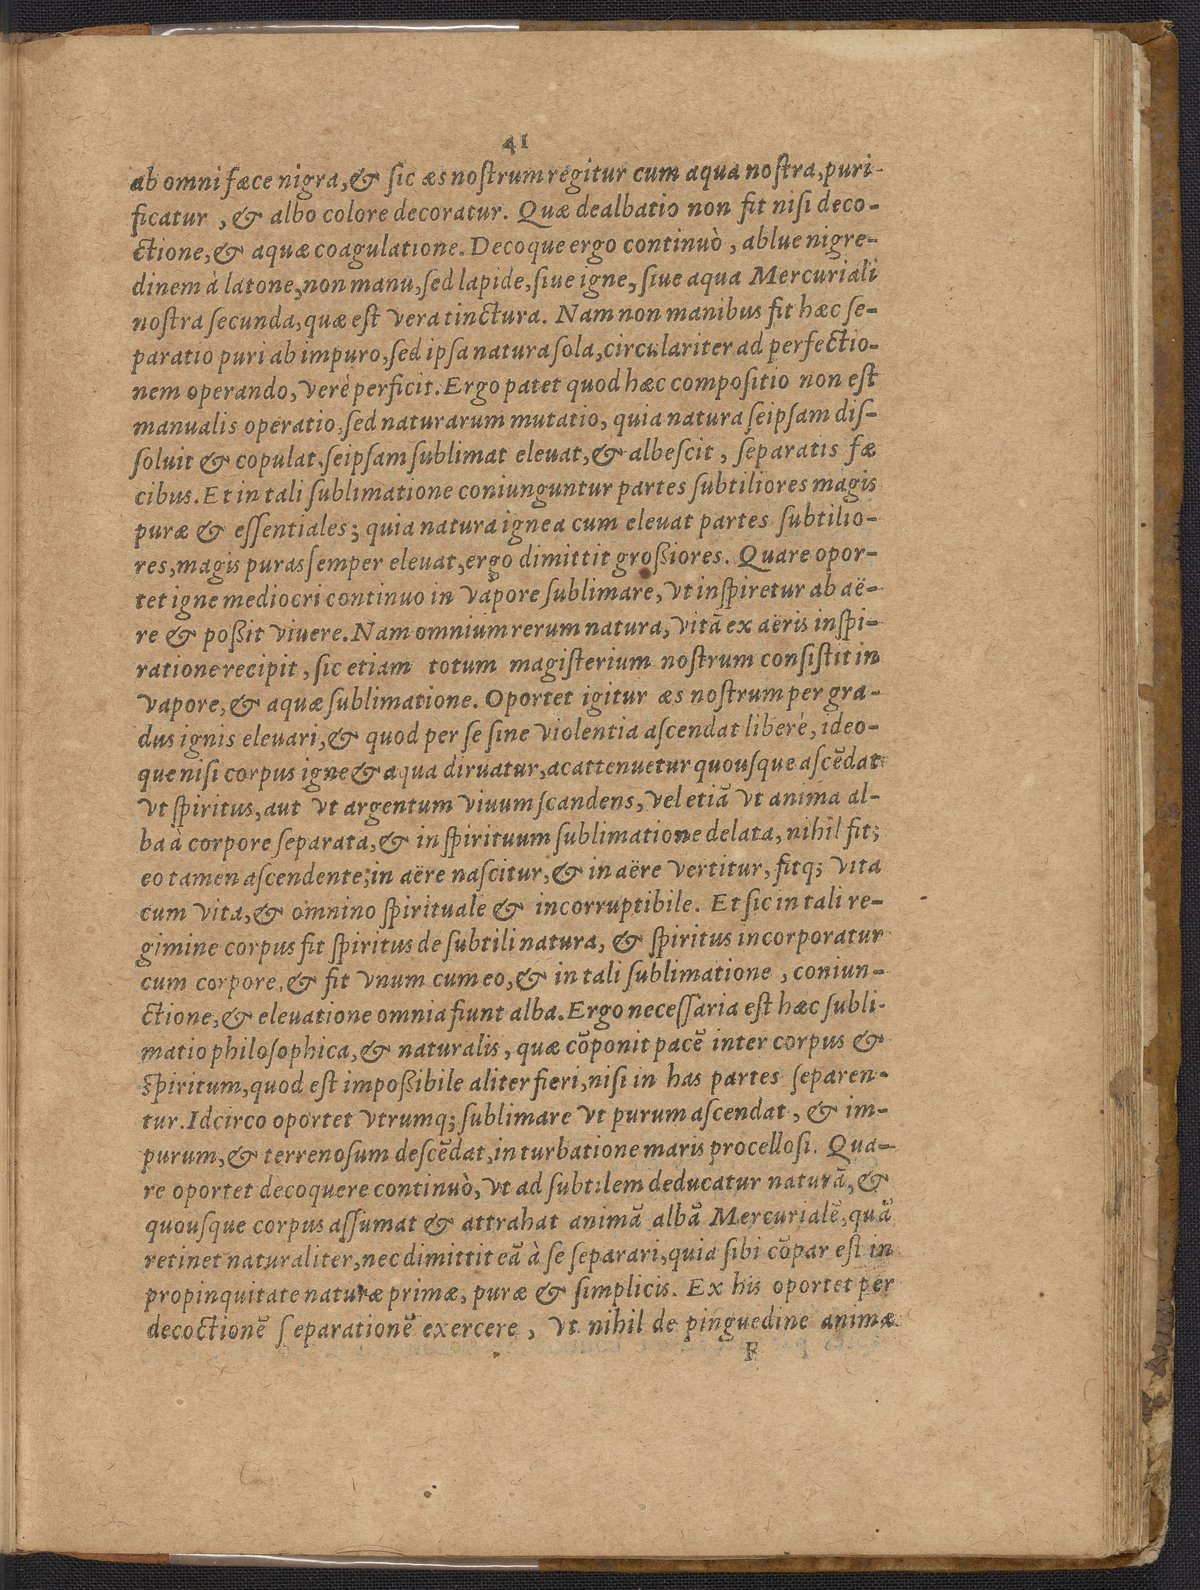 41
ab omni fæce nigra, & ſic æs noſtrum regitur cum aqua noſtra, puri-
ficatur , & albo colore decoratur. Quæ dealbatio non fit niſi deco-
ctione, & aquæ coagulatione. Decoque ergo continuò , ablue nigre-
dinem à latone, non manu, ſed lapide, ſiue igne, ſiue aqua Mercuriali
noſtra ſecunda, quæ eſt vera tinctura. Nam non manibus fit hæc ſe-
paratio puri ab impuro, ſed ipſa natura ſola, circulariter ad perfectio-
nem operando, verè perficit. Ergo patet quod hæc compoſitio non eſt
manualis operatio, ſed naturarum mutatio, quia natura ſeipſam diſ-
ſoluit & copulat, ſeipſam ſublimat eleuat, & albeſcit , ſeparatis fæ
cibus. Et in tali ſublimatione coniunguntur partes ſubtiliores magis
puræ & eſſentiales; quia natura ignea cum eleuat partes ſubtilio-
res, magis puras ſemper eleuat, ergo dimittit großiores. Quare opor-
tet igne mediocri continuo in vapore ſublimare, vt inſpiretur ab aë-
re & poßit viuere. Nam omnium rerum natura, vitã ex aëris inſpi-
ratione recipit , ſic etiam totum magiſterium noſtrum conſiſtit in
vapore, & aquæ ſublimatione. Oportet igitur æs noſtrum per gra-
dus ignis eleuari, & quod per ſe ſine violentia aſcendat liberè, ideo-
que niſi corpus igne & aqua diruatur, ac attenuetur quouſque aſcẽdat
vt ſpiritus, aut vt argentum viuum ſcandens, vel etiã vt anima al-
ba à corpore ſeparata, & in ſpirituum ſublimatione delata, nihil fit;
eo tamen aſcendente, in aëre naſcitur, & in aëre vertitur, fitq; vita
cum vita, & omnino ſpirituale & incorruptibile. Et ſic in tali re-
gimine corpus fit ſpiritus de ſubtili natura, & ſpiritus incorporatur
cum corpore, & fit vnum cum eo, & in tali ſublimatione , coniun-
ctione, & eleuatione omnia fiunt alba. Ergo neceſſaria eſt hæc ſubli-
matio philoſophica, & naturalis, quæ cõponit pacẽ inter corpus &
ſpiritum, quod eſt impoßibile aliter fieri, niſi in has partes ſeparen-
tur. Idcirco oportet vtrumq; ſublimare vt purum aſcendat , & im-
purum, & terrenoſum deſcẽdat, in turbatione maris procelloſi. Qua-
re oportet decoquere continuò, vt ad ſubtilem deducatur naturã, &
quouſque corpus aſſumat & attrahat animã albã Mercurialẽ, quã
retinet naturaliter, nec dimittit eã à ſe ſeparari, quia ſibi cõpar eſt in
propinquitate naturæ primæ, puræ & ſimplicis. Ex his oportet per
decoctionẽ ſeparationẽ exercere , vt nihil de pinguedine animæ
F